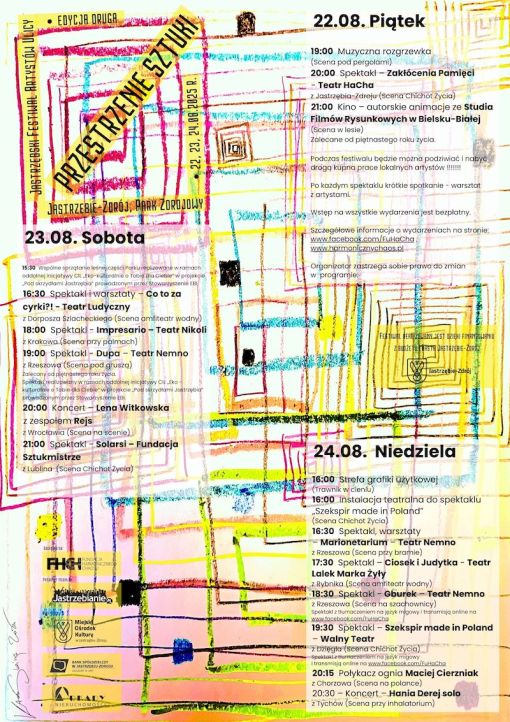 • EDYCJA DRUGA
JASTRZĘBSKI FESTIWAL ARTYSTÓW ULICY
PRZESTRZENIE SZTUKI
22, 23, 24.08.2025 R.
JASTRZĘBIE-ZDRÓJ, PARK ZDROJOWY
22.08. Piątek
19:00 Muzyczna rozgrzewka
(Scena pod pergolami)
20:00 Spektakl – Zakłócenia Pamięci
- Teatr HaCha
z Jastrzębia-Zdroju (Scena Chichot Życia)
21:00 Kino – autorskie animacje ze Studia
Filmów Rysunkowych w Bielsku-Białej
(Scena w lesie)
Zalecane od piętnastego roku życia.
Podczas festiwalu będzie można podziwiać i nabyć
drogą kupna prace lokalnych artystów !!!!!!!
Po każdym spektaklu krótkie spotkanie - warsztat
z artystami.
Wstęp na wszystkie wydarzenia jest bezpłatny.
Szczegółowe informacje o wydarzeniach na stronie:
www.facebook.com/FuHaCha
www.harmonicznychaos.pl
Organizator zastrzega sobie prawo do zmian
w programie.
FESTIWAL REALIZOWANY JEST DZIĘKI FINANSOWANIU
Z BUDŻETU MIASTA JASTRZĘBIE-ZDRÓJ
Jastrzębie-Zdrój
23.08. Sobota
15:30 Wspólne sprzątanie leśnej części Parku realizowane w ramach
oddolnej inicjatywy CIL „Eko-kulturalnie o Tobie dla Ciebie" w projekcie
„Pod skrzydłami Jastrzębia" prowadzonym przez Stowarzyszenie EBI.
16:30 Spektakl i warsztaty – Co to za
cyrki?! - Teatr Ludyczny
z Dorposza Szlacheckiego (Scena amfiteatr wodny)
18:00 Spektakl - Impresario – Teatr Nikoli
z Krakowa (Scena przy palmach)
19:00 Spektakl – Dupa – Teatr Nemno
z Rzeszowa (Scena pod gruszą)
Zalecany od piętnastego roku życia.
Spektakl realizowany w ramach oddolnej inicjatywy CIL „Eko -
kulturalnie o Tobie dla Ciebie" w projekcie „Pod skrzydłami Jastrzębia"
prowadzonym przez Stowarzyszenie EBI.
20:00 Koncert – Lena Witkowska
z zespołem Rejs
z Wrocławia (Scena na scenie)
21:00 Spektakl - Solarsi – Fundacja
Sztukmistrze
z Lublina (Scena Chichot Życia)
24.08. Niedziela
16:00 Strefa grafiki użytkowej
(Trawnik w cieniu)
16:00 Instalacja teatralna do spektaklu
„Szekspir made in Poland"
(Scena Chichot Życia)
16:30 Spektakl, warsztaty
– Marionetarium – Teatr Nemno
z Rzeszowa (Scena przy bramie)
17:30 Spektakl – Ciosek i Judytka - Teatr
Lalek Marka Żyły
z Rybnika (Scena amfiteatr wodny)
18:30 Spektakl – Gburek – Teatr Nemno
z Rzeszowa (Scena na szachownicy)
Spektakl z tłumaczeniem na język migowy i transmisją online na
www.facebook.com/FuHaCha
19:30 Spektakl – Szekspir made in Poland
– Walny Teatr
z Dzięgla (Scena Chichot Życia)
Spektakl z tłumaczeniem na język migowy
i transmisją online na www.facebook.com/FuHaCha
20:15 Połykacz ognia Maciej Cierzniak
z Chorzowa (Scena na polance)
20:30 – Koncert – Hania Derej solo
z Tychów (Scena przy inhalatorium)
FHCH
FUNDACJA
HARMONICZNY
CHAOS
Jastrzębianie
Miejski
Ośrodek
Kultury
BANK SPÓŁDZIELCZY
W JASTRZĘBIU-ZDROJU
ARKADY
NIERUCHOMOŚCI